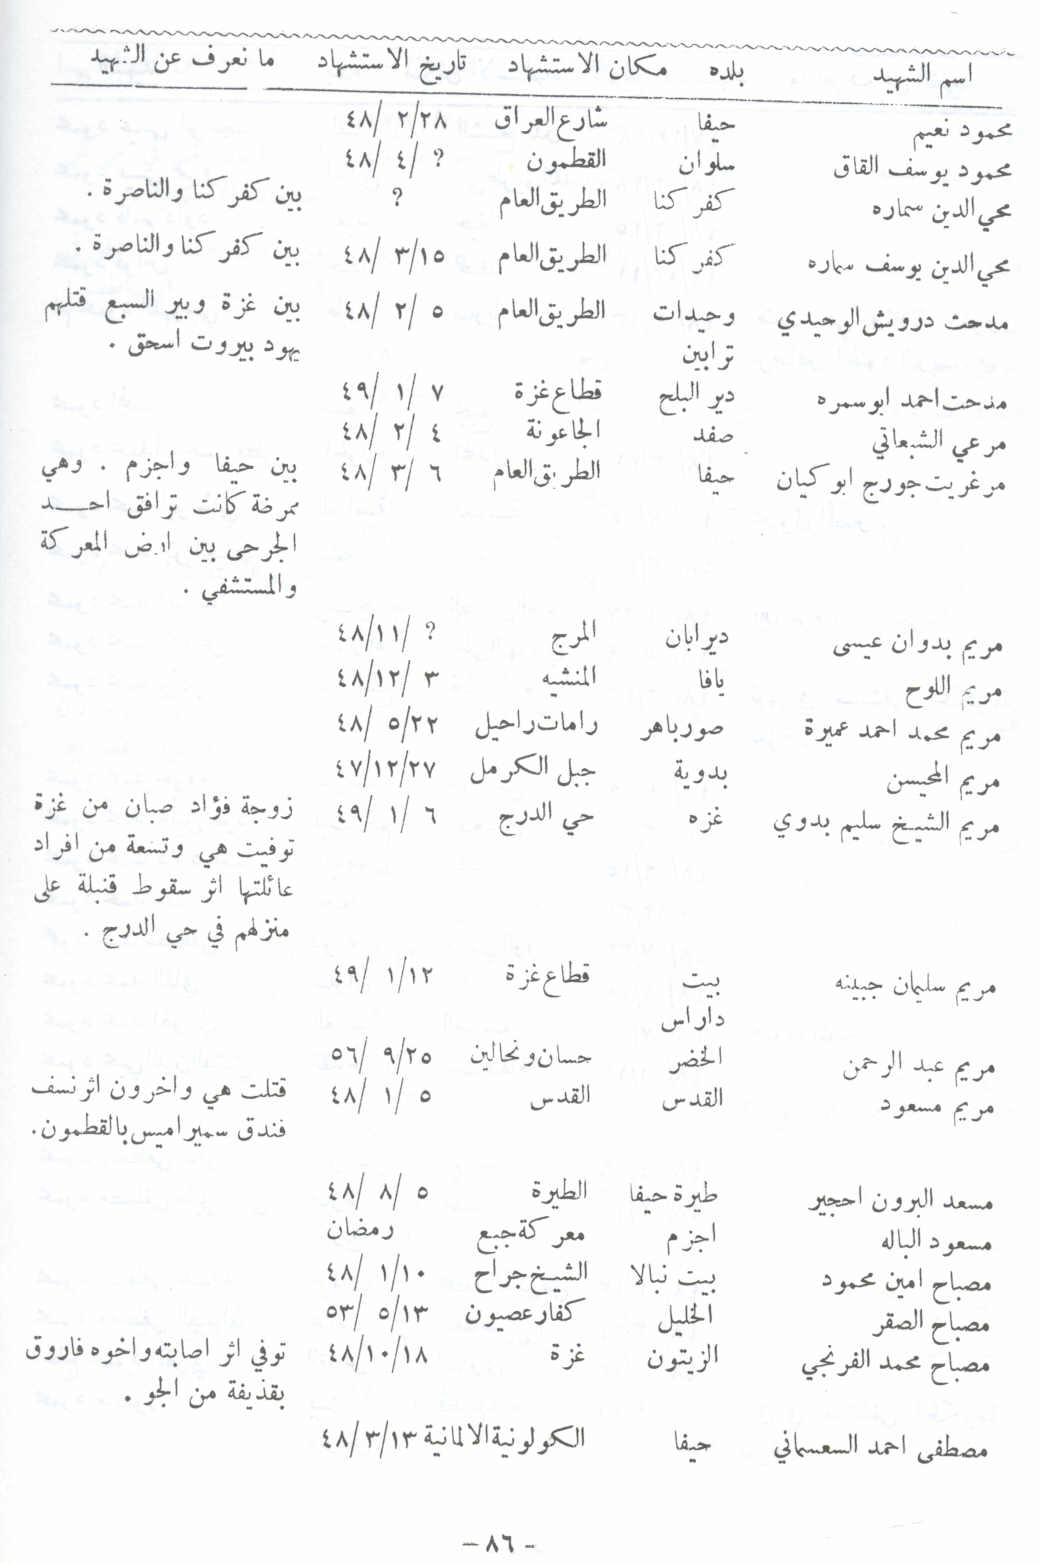 اسم الشهيد بلده مكان الاستشهاد تاريخ الاستشهاد ما نعرف عن الشهيد
محمود نعيم حيفا شارع العراق ٢٨/٢ /٤٨
محمود يوسف القاق سلوان القطمون ? /٤ /٤٨
محي الدين سماره كفر كنا الطريق العام ? بين كفر كنا والناصرة .
محي الدين يوسف سماره كفر كنا الطريق العام ١٥/٣ /٤٨ بين كفر كنا والناصرة .
مدحت درويش الوحيدي وحيدات الطريق العام ٥ /٢ /٤٨ بين غزة وبير السبع قتلهم
ترابين يهود بيروت اسحق .
مدحت احمد ابو سمره دير البلح قطاع غزة ٧ /١ /٤٩
مرعي الشبعاتي صفد الجاعونة ٤ /٢ /٤٨
مرغريت جورج ابو كيان حيفا الطريق العام ٦ /٣ /٤٨ بين حيفا واجزم . وهي
ممرضة كانت ترافق احد
الجرحى بين ارض المعركة
والمستشفي .
مريم بدوان عيسى دير ابان المرج ? /١١/٤٨
مريم اللوح يافا المنشيه ٣ /١٢/٤٨
مريم محمد احمد عميرة صور باهر رامات راحيل ٢٢/٥ /٤٨
مريم المحيسن بدوية جبل الكرمل ٢٧/١٢/٤٧
مريم الشيخ سليم بدوي غزه حي الدرج ٦ /١ /٤٩ زوجة فؤاد صبان من غزة
توفيت هي وتسعة من افراد
عائلتها اثر سقوط قنبلة على
منزلهم في حي الدرج .
مريم سليمان جبينه بيت قطاع غزة ١٢/١ /٤٩
داراس
مريم عبد الرحمن الخضر حسان ونحالين ٢٥/٩ /٥٦
مريم مسعود القدس القدس ٥ /١ /٤٨ قتلت هي واخرون اثر نسف
فندق سميراميس بالقطمون.
مسعد البرون احجير طيرة حيفا الطيرة ٥ /٨ /٤٨
مسعود الباله اجزم معركة جبع رمضان
مصباح امين محمود بيت نبالا الشيخ جراح ١٠/١ /٤٨
مصباح الصقر الخليل كفار عصيون ١٣/٥ /٥٣
مصباح محمد الفرنجي الزيتون غزة ١٨/١٠/٤٨ توفي اثر اصابته واخوه فاروق
بقذيفة من الجو .
مصطفى احمد السعسماني حيفا الكولونية الالمانية ١٣/٣ /٤٨
- ٨٦ -